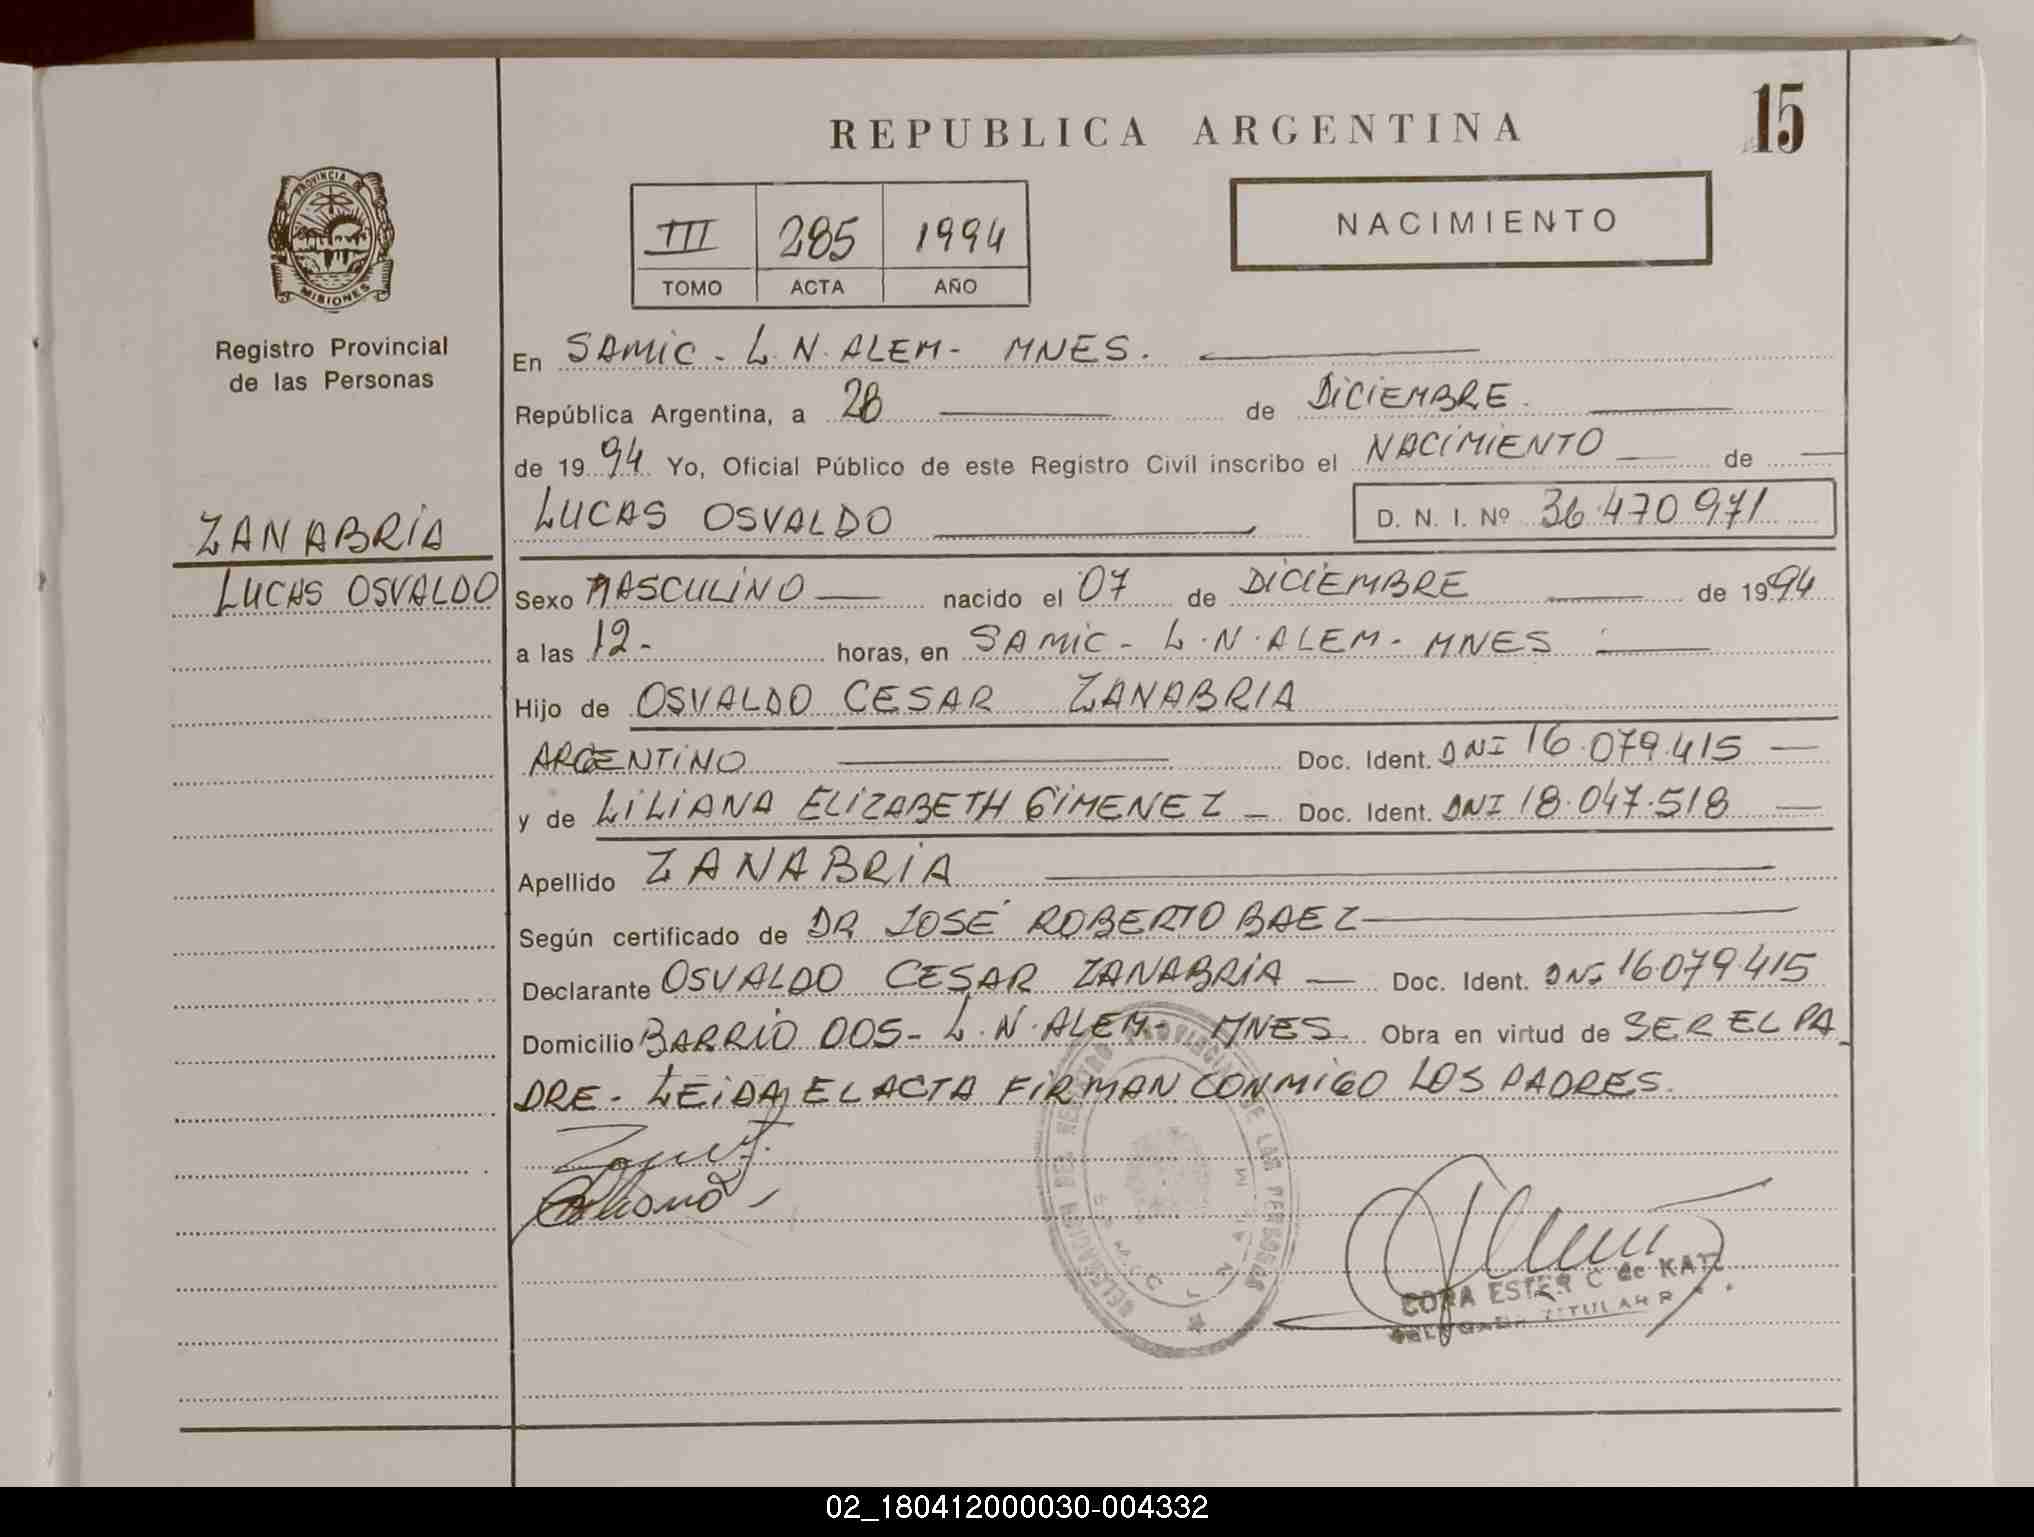 REPUBLICA ARGENTINA
15
PROVINCIA DE
MISIONES
Registro Provincial
de las Personas
III 285 1994
TOMO ACTA AÑO
NACIMIENTO
En SAMIC - L.N. ALEM - MNES.
República Argentina, a 28 de DICIEMBRE
de 1994 Yo, Oficial Público de este Registro Civil inscribo el NACIMIENTO de
ZANABRIA
LUCAS OSVALDO
LUCAS OSVALDO D. N. I. Nº 36.470.971
Sexo MASCULINO nacido el 07 de DICIEMBRE de 1994
a las 12- horas, en SAMIC - L.N. ALEM - MNES
Hijo de OSVALDO CESAR ZANABRIA
ARGENTINO Doc. Ident. DNI 16.079.415
y de LILIANA ELIZABETH GIMENEZ Doc. Ident. DNI 18.047.518
Apellido ZANABRIA
Según certificado de DR JOSÉ ROBERTO BAEZ
Declarante OSVALDO CESAR ZANABRIA Doc. Ident. DNI 16.079.415
Domicilio BARRIO OOS - L.N. ALEM - MNES. Obra en virtud de SER EL PA
DRE - LEIDA EL ACTA FIRMAN CONMIGO LOS PADRES.
DELEGACION DEL REGISTRO PROVINCIAL DE LAS PERSONAS
ESTER C de
TITULAR
02_180412000030-004332